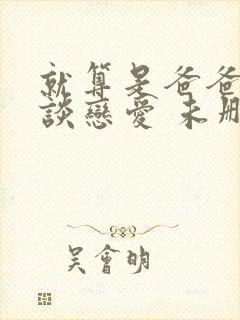 就算是爸爸
談戀愛 未刪
吳會明